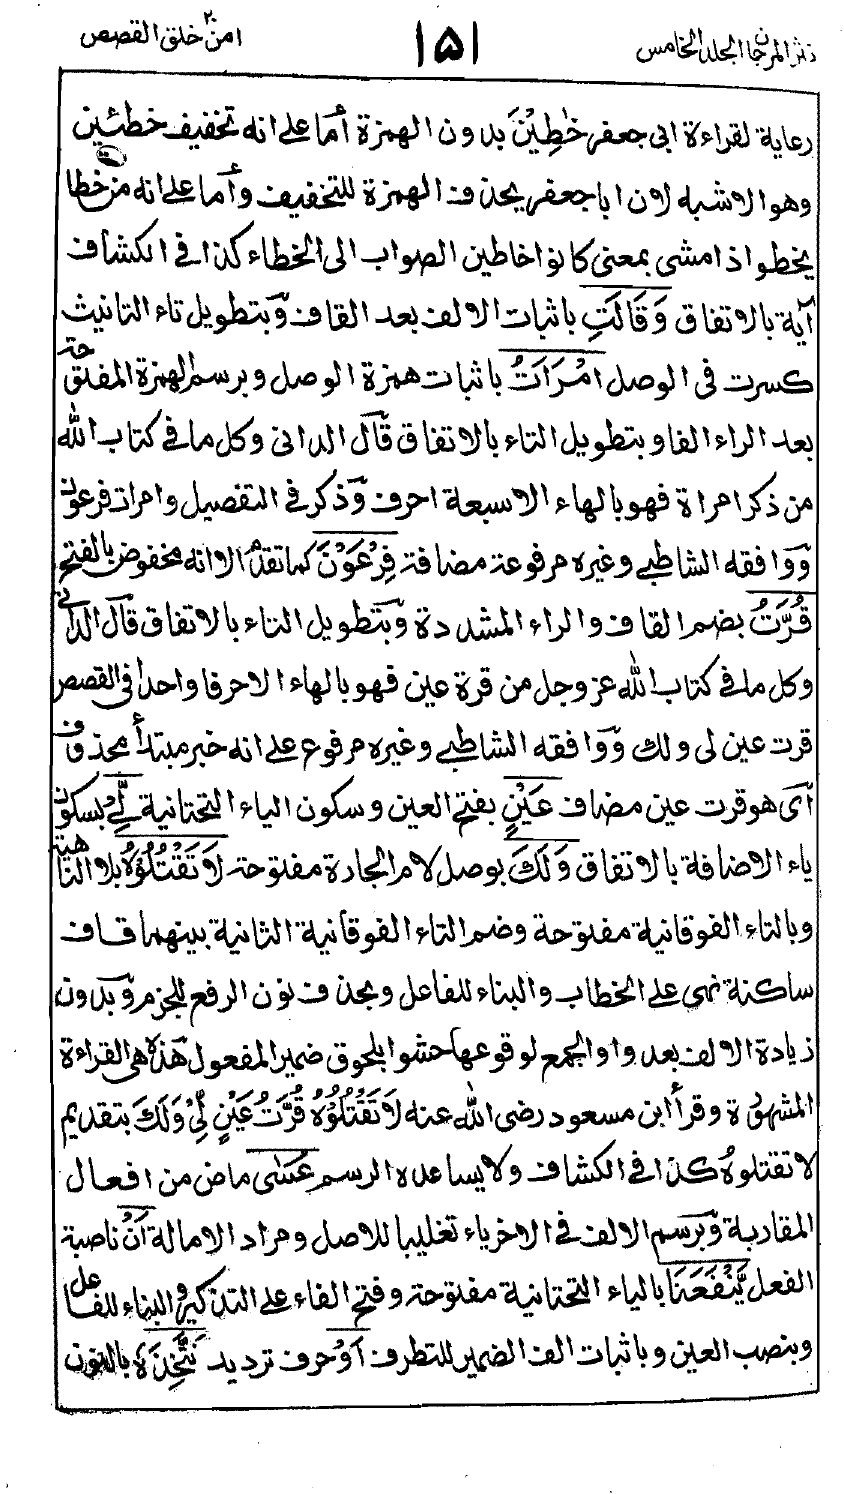 نثر المرجان الجلد الخامس
۱۵۱
امن خلق ۲۰ القصص
رعاية لقراءة ابى جعفر خٰطِيْنَ بدون الهمزة أما على انه تخفيف خطئين
وهو الاشبه لان اباجعفر يحذف الهمزة للتخفيف وأما على انه من خطا
يخطو اذا مشى بمعنى كانوا خاطين الصواب الى الخطاء كذا فى الكشاف
آية بالاتفاق وَقَالَتِ باثبات الالف بعد القاف وبتطويل تاء التانيث
كسرت فى الوصل امْرَاَتُ باثبات همزة الوصل وبرسم الهمزة المفتوحة
بعد الراء الفا وبتطويل التاء بالاتفاق قال الدانى وكل ما فى كتاب الله
من ذكر امراة فهو بالهاء الا سبعة احرف وذكر فى التفصيل وامرات فرعون
ووافقه الشاطبى وغيره مرفوعة مضافة فِرْعَوْنَ كما تقدم الا انه مخفوض بالفتح
قُرَّتُ بضم القاف والراء المشددة وبتطويل التاء بالاتفاق قال الدانى
وكل ما فى كتاب الله عز وجل من قرة عين فهو بالهاء الا حرفا واحدا فى القصص
قرت عين لى ولك ووافقه الشاطبى وغيره مرفوع على انه خبر مبتدأ محذوف
آى هو قرت عين مضاف عَيْنٍ بفتح العين وسكون الياء التحتانية لِّىْ بسكون
ياء الاضافة بالاتفاق وَلَكَ بوصل لام الجادة مفتوحة لَا تَقْتُلُوْهُ بلا الناهية
وبالتاء الفوقانية مفتوحة وضم التاء الفوقانية الثانية بينهما قاف
ساكنة نهى على الخطاب والبناء للفاعل وبحذف نون الرفع للجزم وبدون
زيادة الالف بعد واو الجمع لوقوعها حشوا بلحوق ضمير المفعول هذه هى القراءة
المشهورة وقرأ ابن مسعود رضى الله عنه لَا تَقْتُلُوْهُ قُرَّتُ عَيْنٍ لِّىْ وَلَكَ بتقديم
لا تقتلوهُ كذا فى الكشاف ولا يساعده الرسم عَسٰى ماض من افعال
المقاربة وبرسم الالف فى الاخر ياء تغليبا للاصل ومراد الامالة اَنْ ناصبة
الفعل يَّنْفَعَنَا بالياء التحتانية مفتوحة وفتح الفاء على التذكير والبناء للفاعل
وبنصب العين وباثبات الف الضمير للتطرف اَوْ حرف ترديد نَتَّخِذَهٗ بالنون